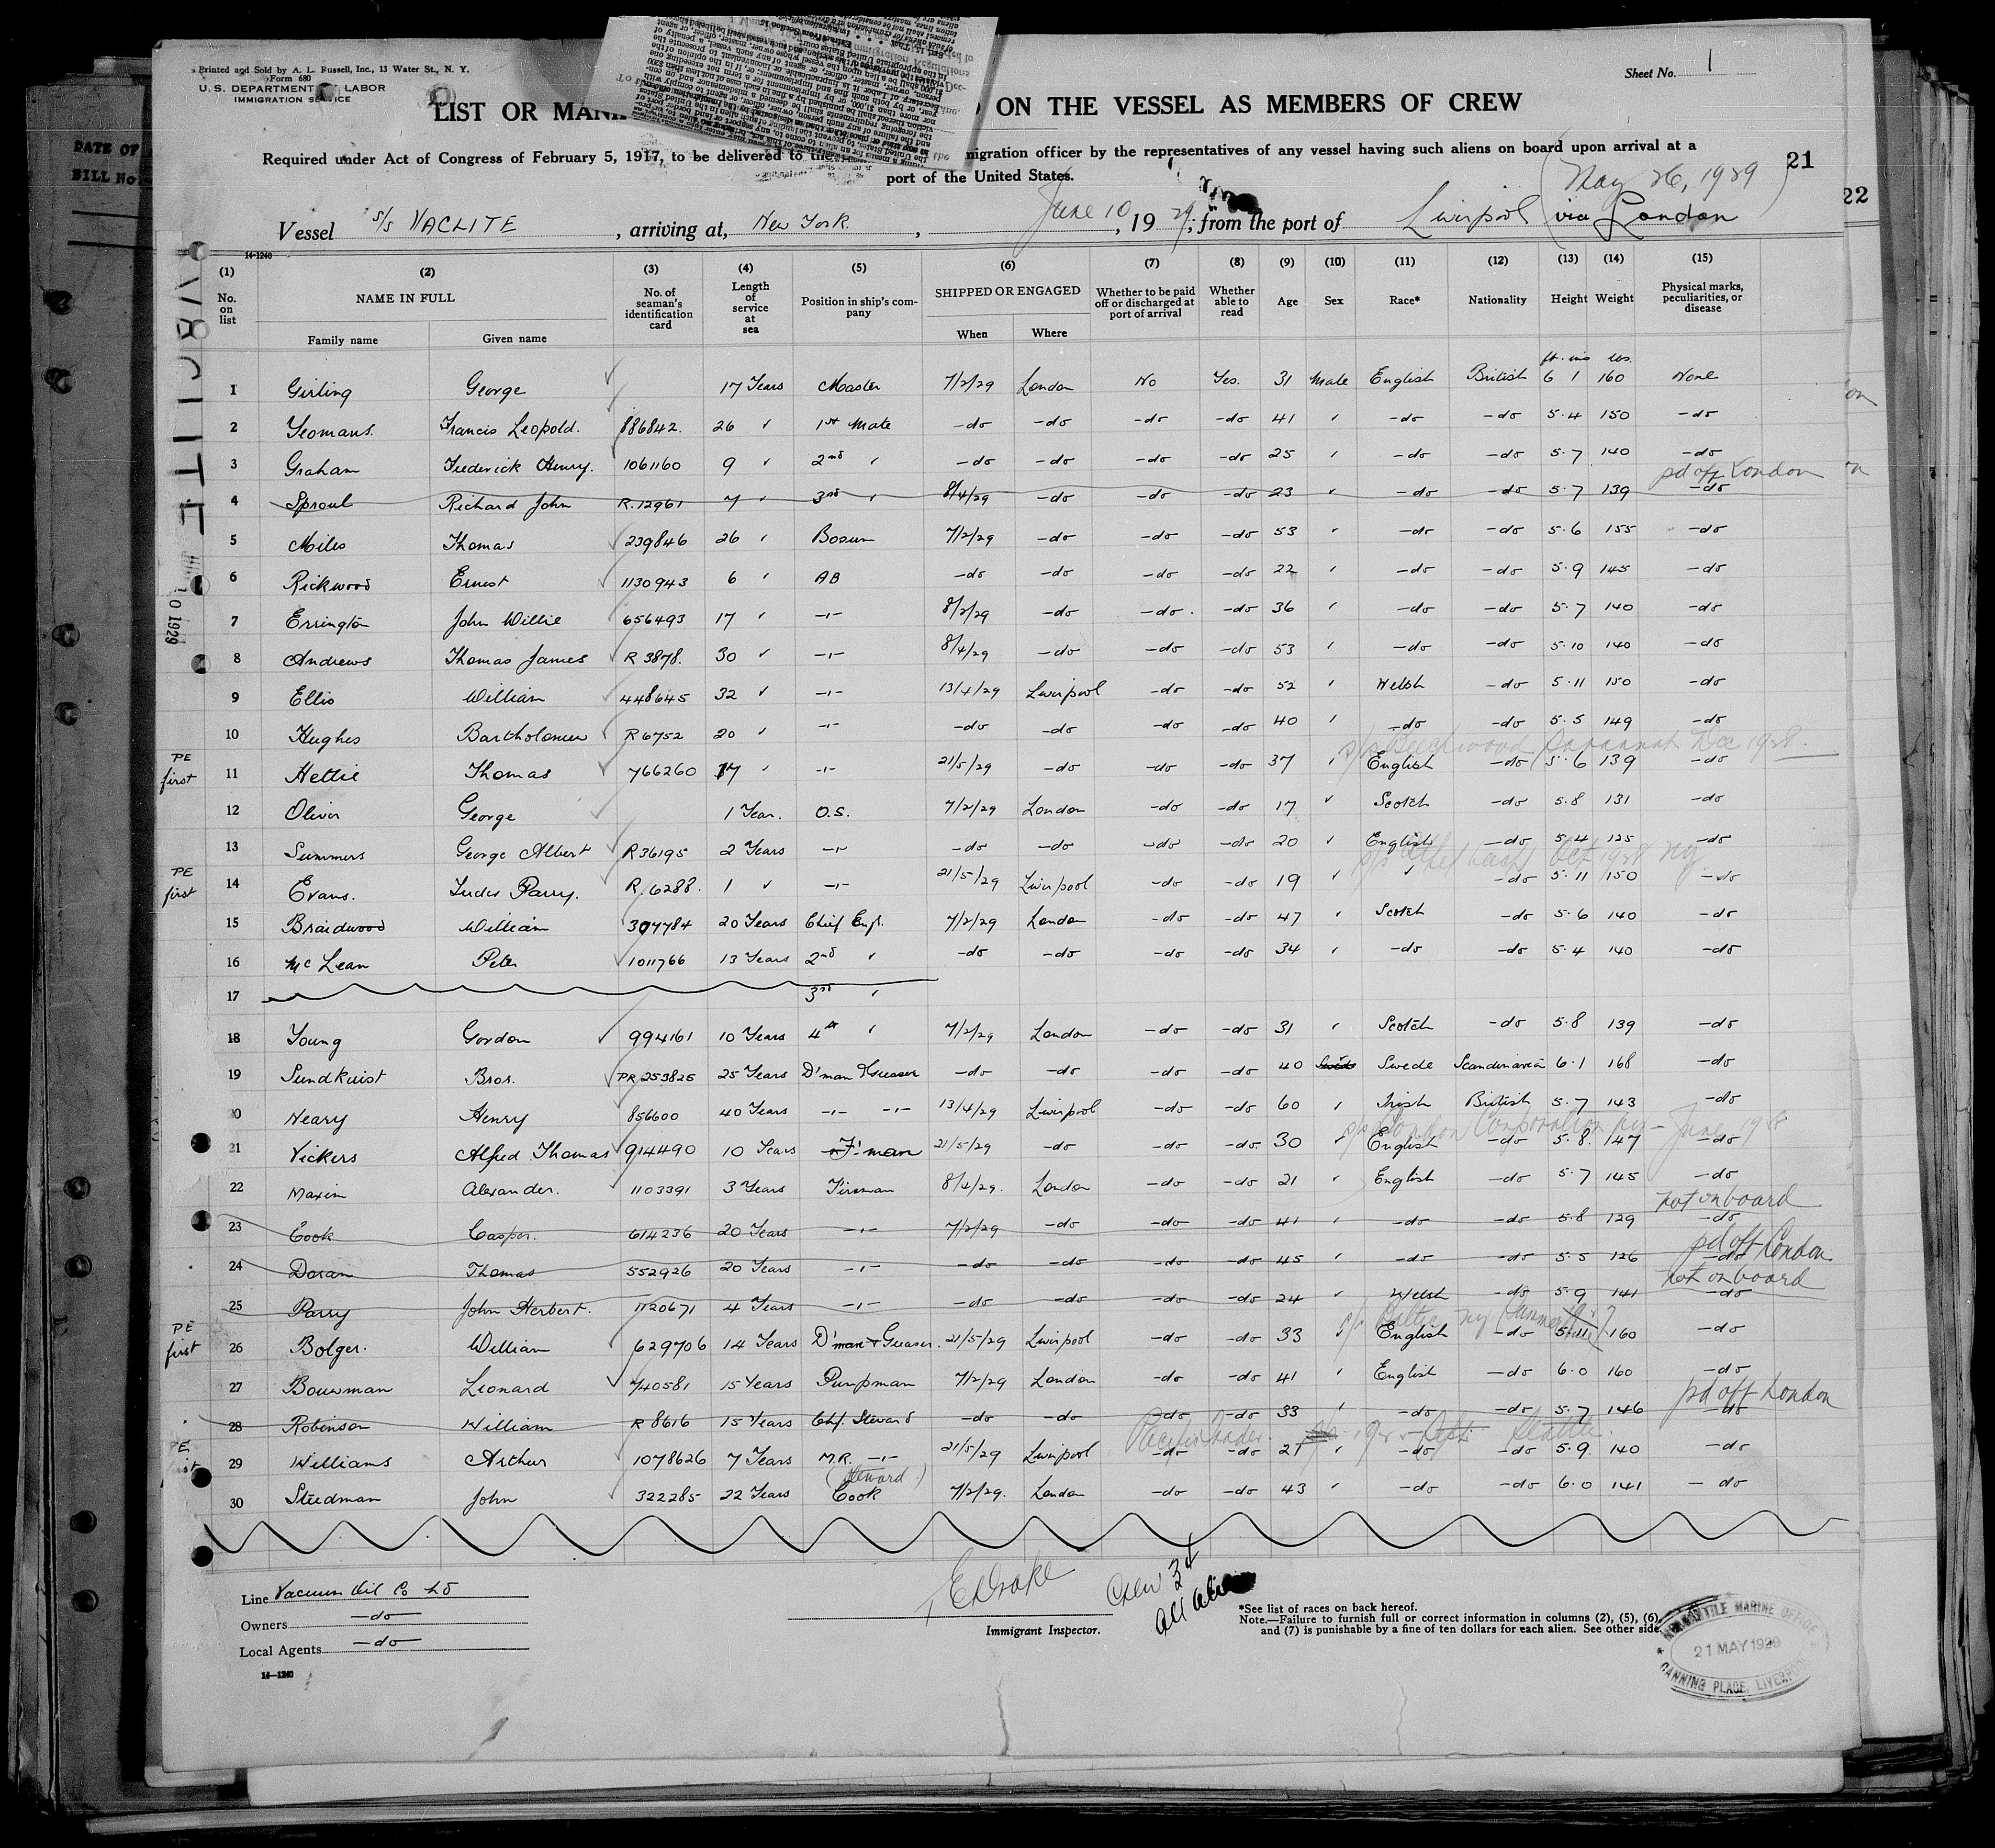 Printed and Sold by A. L. Russell, Inc., 13 Water St., N. Y.
Form 680
U. S. DEPARTMENT LABOR
IMMIGRATION SERVICE
Sheet No. 1
LIST OR ON THE VESSEL AS MEMBERS OF CREW
Required under Act of Congress of February 5, 1917, to be delivered to the immigration officer by the representatives of any vessel having such aliens on board upon arrival at a
port of the United States.
21
22
(May 26, 1929)
Vessel S/S VACLITE, arriving at, New York, June 10, 1929, from the port of Liverpool (via London
14-1240
(1) (2) (3) (4) (5) (6) (7) (8) (9) (10) (11) (12) (13) (14) (15)
No. on list NAME IN FULL Family name Given name No. of seaman's identification card Length of service at sea Position in ship's company SHIPPED OR ENGAGED When Where Whether to be paid off or discharged at port of arrival Whether able to read Age Sex Race* Nationality Height Weight Physical marks, peculiarities, or disease
ft. ins lbs.
1 Girling George 17 Years Master 7/2/29 London No Yes. 31 Male English British 6 1 160 None
2 Yeomans. Francis Leopold. 886842. 26 " 1st Mate -do -do -do -do 41 " -do -do 5.4 150 -do
3 Graham Frederick Henry. 1061160 9 " 2nd " -do -do -do -do 25 " -do -do 5.7 140 -do
pd off London
4 Sproul Richard John R.12961 7 " 3rd " 8/4/29 -do -do -do 23 " -do -do 5.7 139 -do
5 Miles Thomas 239846 26 " Bosun 7/2/29 -do -do -do 53 " -do -do 5.6 155 -do
6 Rickwood Ernest 1130943 6 " AB -do -do -do -do 22 " -do -do 5.9 145 -do
7 Errington John Willie 656493 17 " -"- 8/2/29 -do -do -do 36 " -do -do 5.7 140 -do
8 Andrews Thomas James R 3878. 30 " -"- 8/4/29 -do -do -do 53 " -do -do 5.10 140 -do
9 Ellis William 448645 32 " -"- 13/4/29 Liverpool -do -do 52 " Welsh -do 5.11 150 -do
10 Hughes Bartholomew R 6752 20 " -"- -do -do -do -do 40 " -do -do 5.5 149 -do
S/S Beechwood Savannah Dec 1928.
PE first 11 Hettie Thomas 766260 17 " -"- 21/5/29 -do -do -do 37 " English -do 5.6 139 -do
12 Oliver George 1 Year. O.S. 7/2/29 London -do -do 17 " Scotch -do 5.8 131 -do
13 Summers George Albert R36195 2 Years -"- -do -do -do -do 20 " English -do 5.4 125 -do
Oct 1928 NY
PE first 14 Evans. Parry. R. 6288. 1 " -"- 21/5/29 Liverpool -do -do 19 " " -do 5.11 150 -do
15 Braidwood William 307784 20 Years Chief Eng. 7/2/29 London -do -do 47 " Scotch -do 5.6 140 -do
16 McLean Peter 1011766 13 Years 2nd " -do -do -do -do 34 " -do -do 5.4 140 -do
17 3rd "
18 Young Gordon 994161 10 Years 4th " 7/2/29 London -do -do 31 " Scotch -do 5.8 139 -do
19 Sundkuist Bror. PR 253825 25 Years D'man & Greaser -do -do -do -do 40 Swede Scandinavia 6.1 168 -do
20 Neary Henry 856600 40 Years -"- -"- 13/4/29 Liverpool -do -do 60 " Irish British 5.7 143 -do
S/S London Corporation NY - June 1928
21 Vickers Alfred Thomas 914490 10 Years F'man 21/5/29 -do -do -do. 30 " English -do 5.8. 147 -do
22 Maxim Alexander. 1103391 3 Years Fireman 8/4/29. London -do -do 21 " English -do 5.7 145 -do
not onboard
23 Cook Casper. 614236 20 Years -"- 7/2/29 -do -do -do 41 " -do -do 5.8 129 -do
pd off London
24 Doran Thomas 552926 20 Years -"- -do -do -do -do 45 " -do -do 5.5 126 -do
not onboard
25 Parry John Herbert. 1120671 4 Years -"- -do -do -do -do 24 " Welsh -do 5.9 141 -do
PE first 26 Bolger. William 629706 14 Years D'man & Greaser. 21/5/29 Liverpool -do -do 33 " English -do 160 -do
27 Bouwman Leonard 740581 15 Years Pumpman 7/2/29 London -do -do 41 " English -do 6.0 160 -do
pd off London
28 Robinson William R 8616 15 Years Chf. Steward -do -do -do -do 33 " -do -do 5.7 146 -do
Pacific Trader. Sept. Seattle.
PE first 29 Williams Arthur 1078626 7 Years M.R. -"- 21/5/29 Liverpool -do -do 21 " -do -do 5.9. 140 -do
(Steward.)
30 Steedman John 322285 22 Years Cook 7/2/29. London -do -do 43 " -do -do 6.0 141 -do
Line Vacuum Oil Co Ld
Owners -do-
Local Agents -do-
14-1240
Immigrant Inspector.
Crew 34
all
*See list of races on back hereof.
Note.—Failure to furnish full or correct information in columns (2), (5), (6),
and (7) is punishable by a fine of ten dollars for each alien. See other side.
MERCANTILE MARINE OFFICE
21 MAY 1929
CANNING PLACE, LIVERPOOL
VACLITE
JUN 10 1929
DATE OF
BILL No.